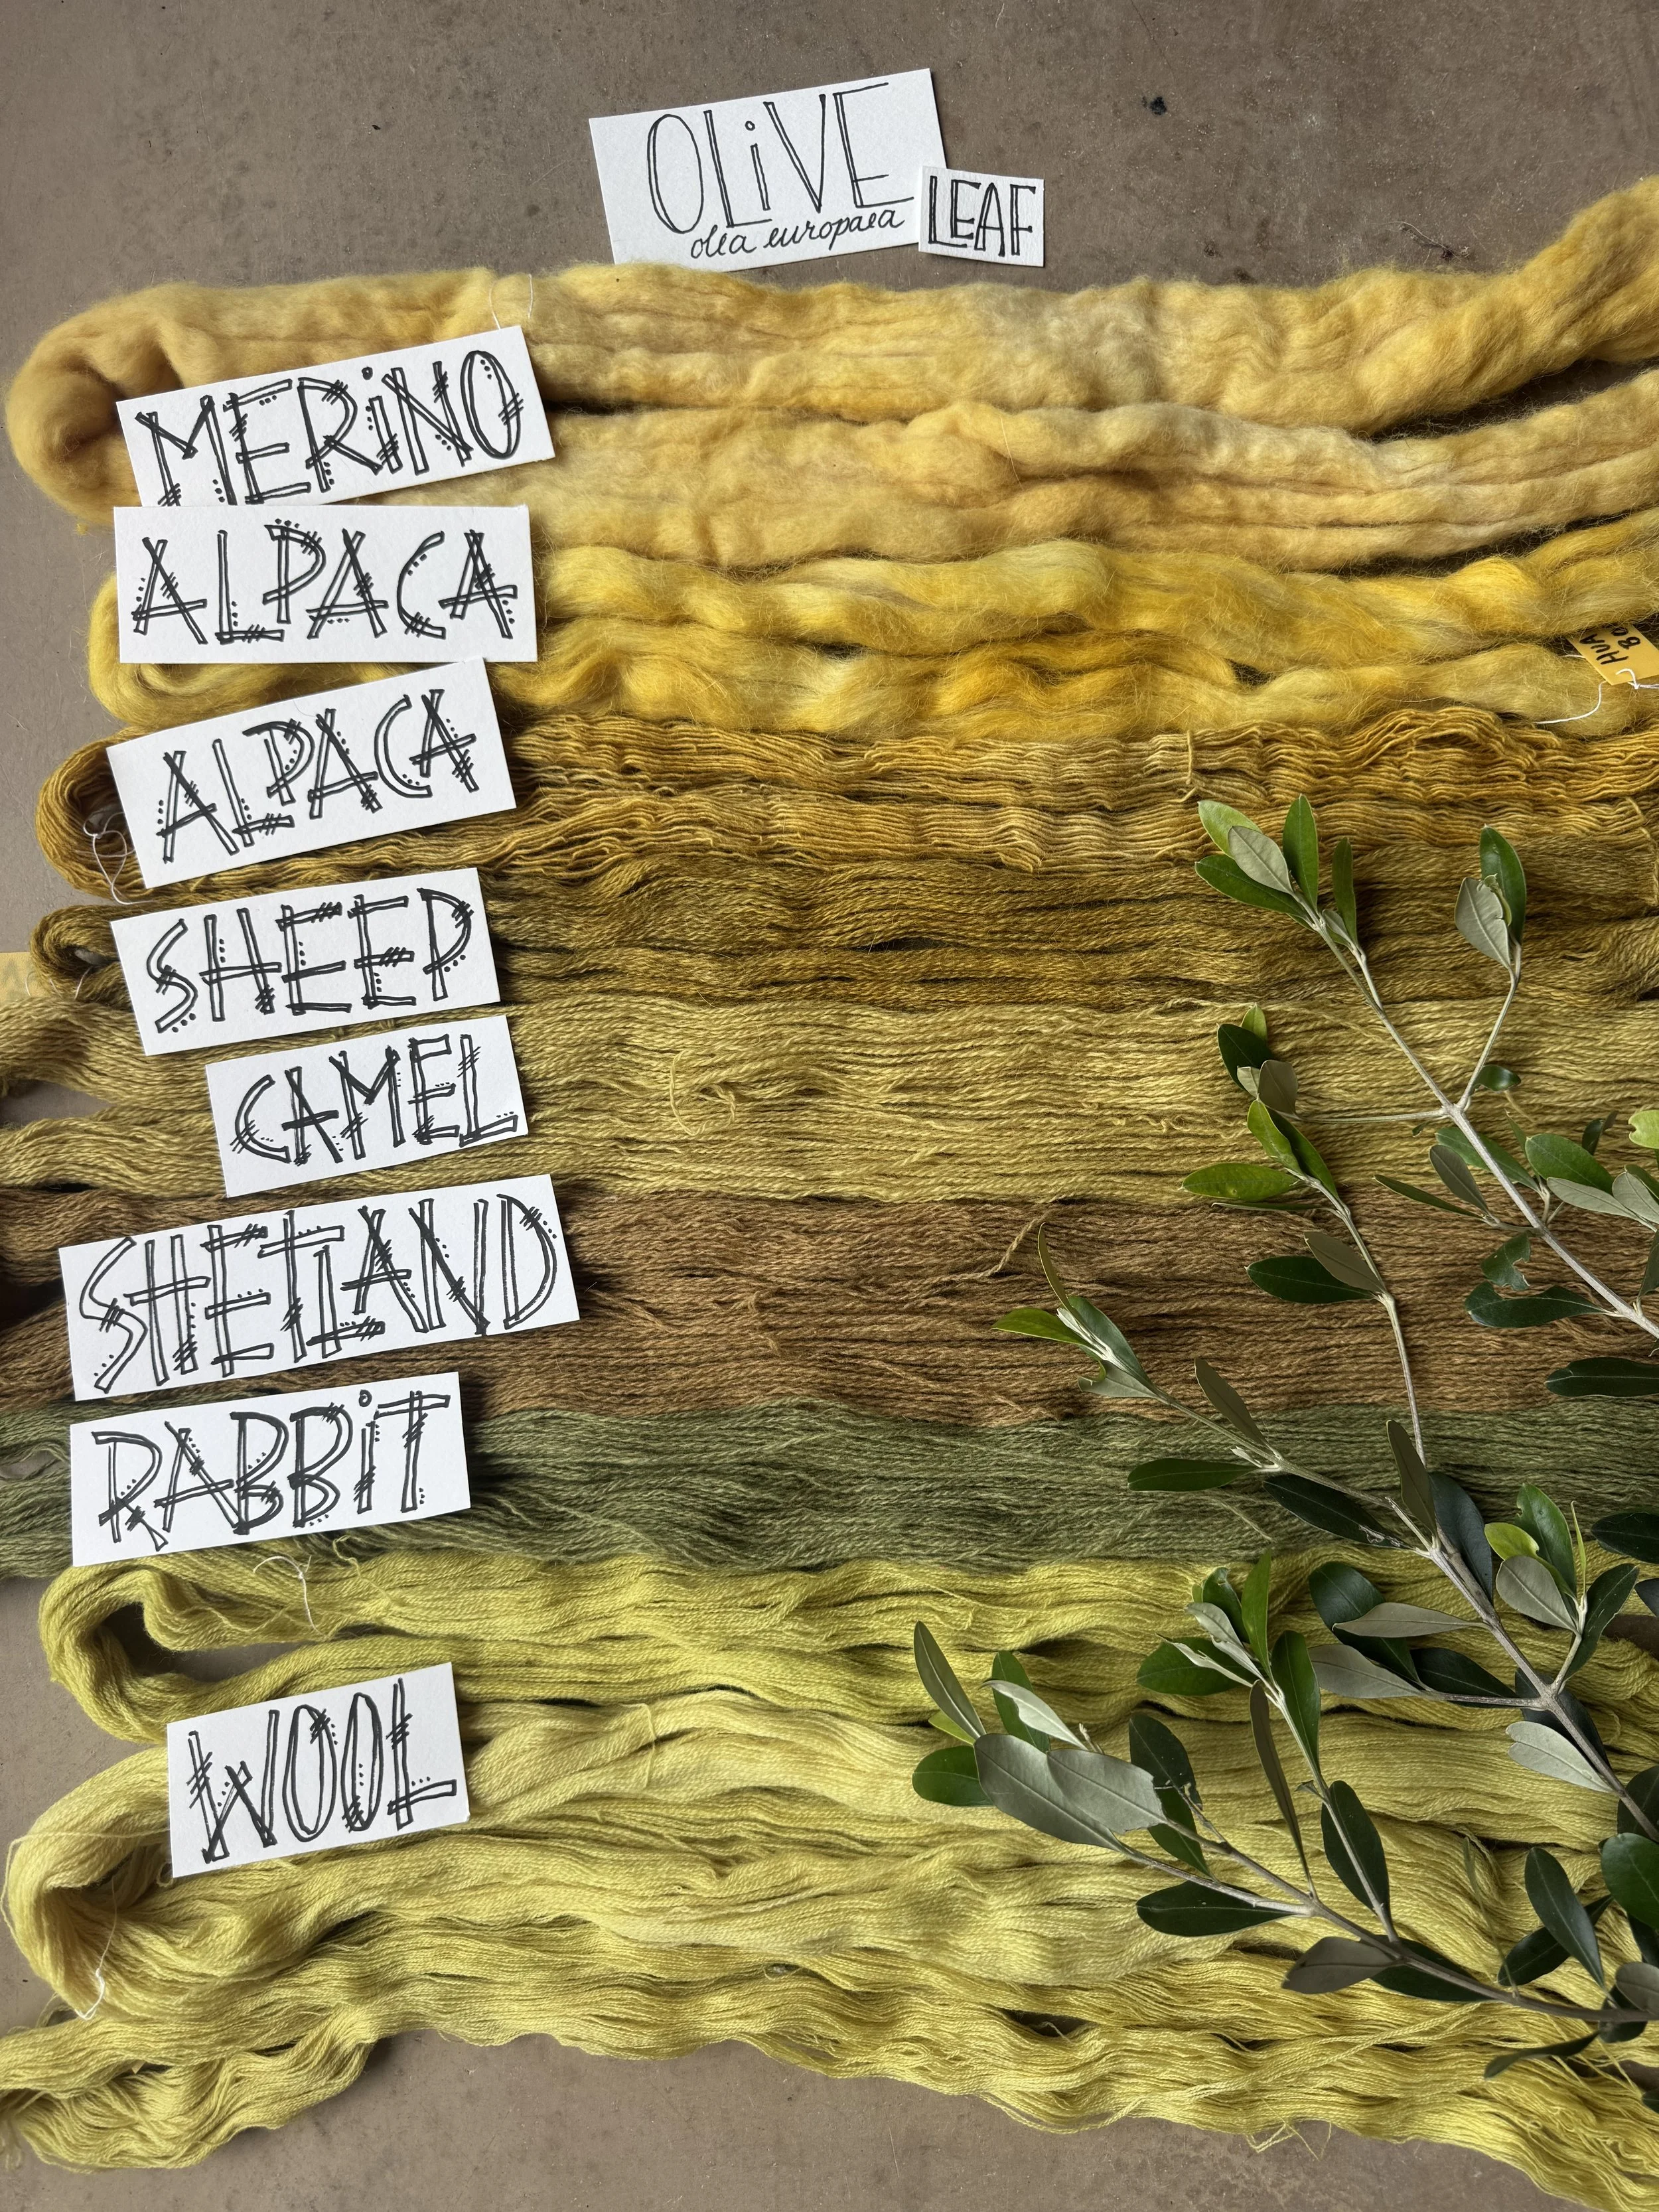 OLiVE
olea europaea
LEAF
MERiNO
ALPACA
ALPACA
SHEEP
CAMEL
SHETLAND
RABBiT
WOOL